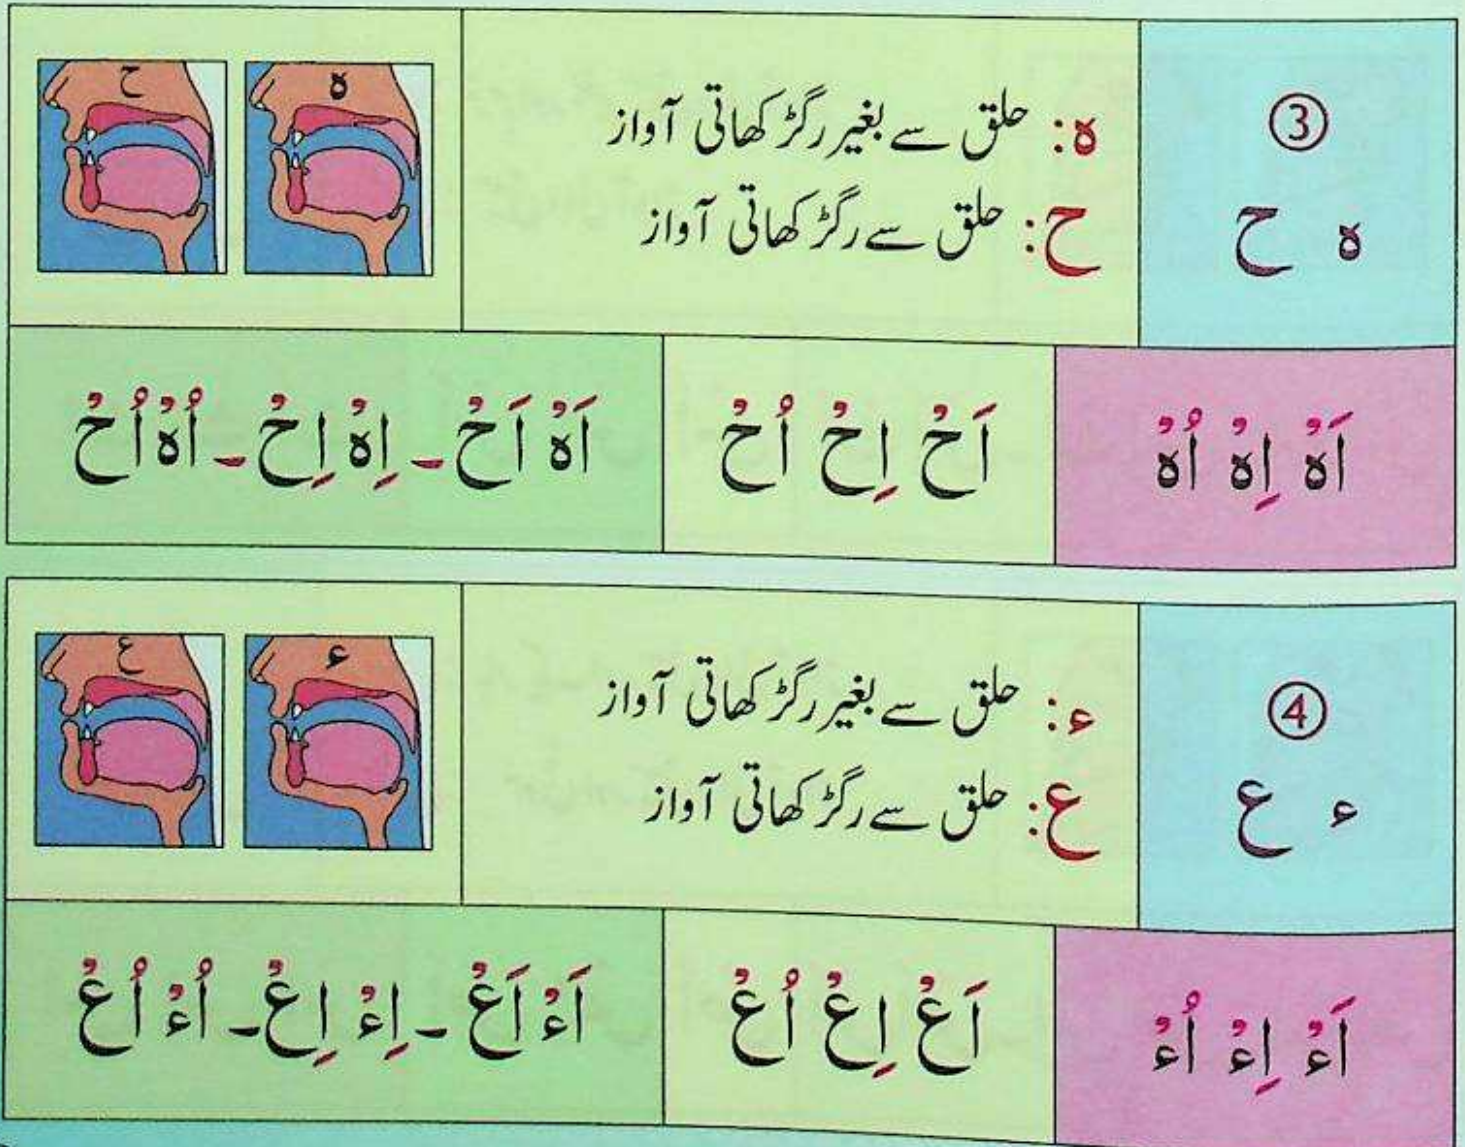 ③
ہ ح
ہ: حلق سے بغیر رگڑ کھاتی آواز
ح: حلق سے رگڑ کھاتی آواز
ہ
ح
اَہْ اِہْ اُہْ
اَحْ اِحْ اُحْ
اَہْ اَحْ ۔ اِہْ اِحْ ۔ اُہْ اُحْ
④
ء ع
ء: حلق سے بغیر رگڑ کھاتی آواز
ع: حلق سے رگڑ کھاتی آواز
ء
ع
اَءْ اِءْ اُءْ
اَعْ اِعْ اُعْ
اَءْ اَعْ ۔ اِءْ اِعْ ۔ اُءْ اُعْ